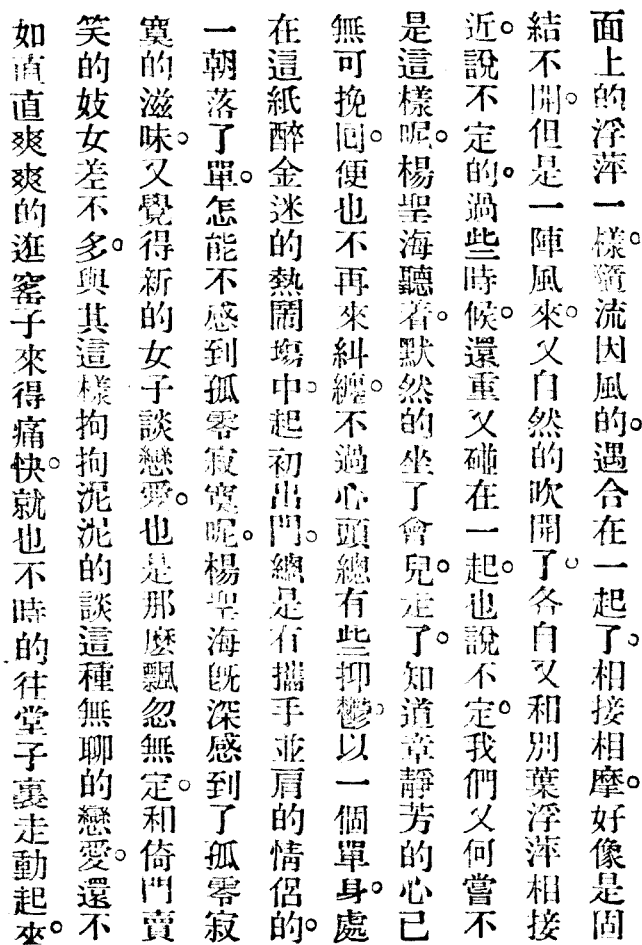 面上的浮萍一樣。隨流因風的。遇合在一起了。相接相摩。好像是固
結不開。但是一陣風來。又自然的吹開了。各自又和別葉浮萍相接
近。說不定的。過些時候。還重又碰在一起。也說不定。我們又何嘗不
是這樣呢。楊聖海聽着。默然的坐了會兒。走了。知道章靜芳的心已
無可挽回。便也不再來糾纏。不過心頭總有些抑鬱。以一個單身。處
在這紙醉金迷的熱鬧塲中。起初出門。總是有攜手並肩的情侶的。
一朝落了單。怎能不感到孤零寂寞呢。楊聖海旣深感到了孤零寂
寞的滋味。又覺得新的女子談戀愛。也是那麼飄忽無定。和倚門賣
笑的妓女差不多。與其這樣拘拘泥泥的談這種無聊的戀愛。還不
如直直爽爽的逛窰子來得痛快。就也不時的往堂子裏走動起來。